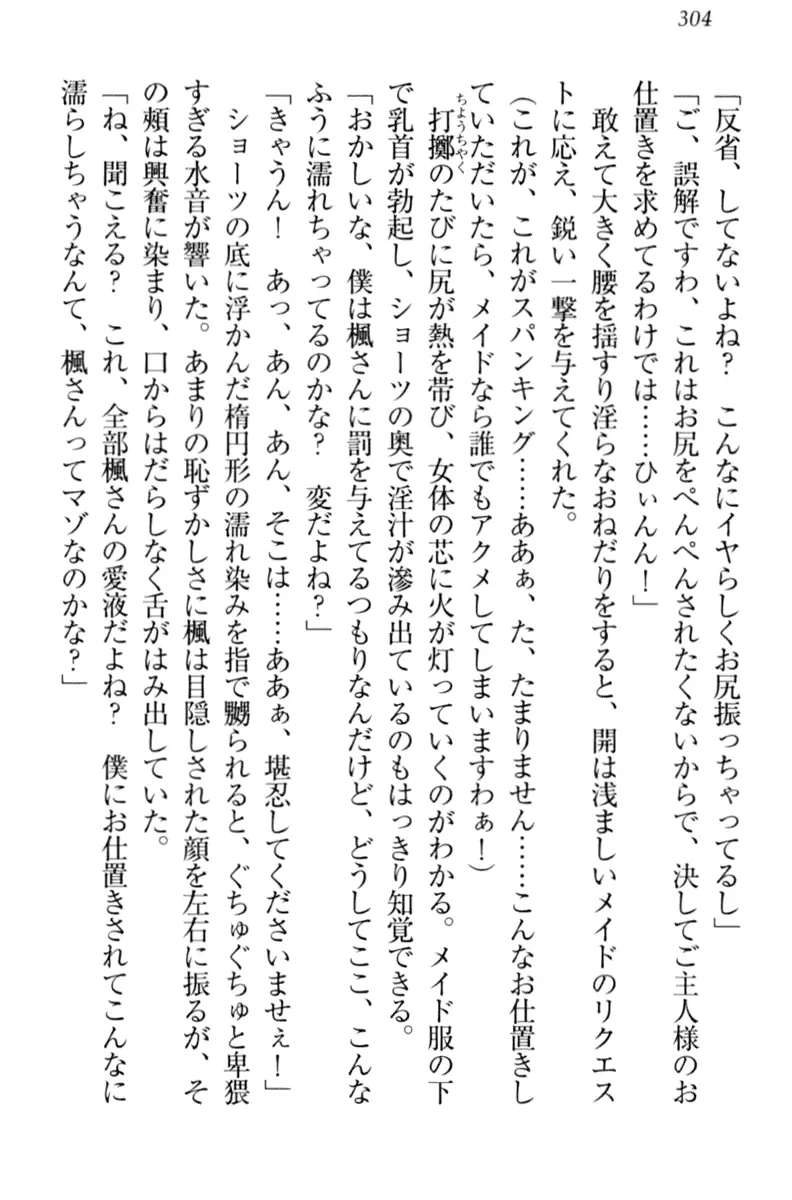 304
「反省、してないよね？　こんなにイヤらしくお尻振っちゃってるし」
「ご、誤解ですわ、これはお尻をぺんぺんされたくないからで、決してご主人様のお
仕置きを求めてるわけでは……ひぃんん！」
　敢えて大きく腰を揺すり淫らなおねだりをすると、開は浅ましいメイドのリクエス
トに応え、鋭い一撃を与えてくれた。
（これが、これがスパンキング……ああぁ、た、たまりません……こんなお仕置きし
ていただいたら、メイドなら誰でもアクメしてしまいますわぁ！）
　打擲のたびに尻が熱を帯び、女体の芯に火が灯っていくのがわかる。メイド服の下
ちょうちゃく
で乳首が勃起し、ショーツの奥で淫汁が滲み出ているのもはっきり知覚できる。
「おかしいな、僕は楓さんに罰を与えてるつもりなんだけど、どうしてここ、こんな
ふうに濡れちゃってるのかな？　変だよね？」
「きゃうん！　あっ、あん、あん、そこは……ああぁ、堪忍してくださいませぇ！」
　ショーツの底に浮かんだ楕円形の濡れ染みを指で嬲られると、ぐちゅぐちゅと卑猥
すぎる水音が響いた。あまりの恥ずかしさに楓は目隠しされた顔を左右に振るが、そ
の頬は興奮に染まり、口からはだらしなく舌がはみ出していた。
「ね、聞こえる？　これ、全部楓さんの愛液だよね？　僕にお仕置きされてこんなに
濡らしちゃうなんて、楓さんってマゾなのかな？」